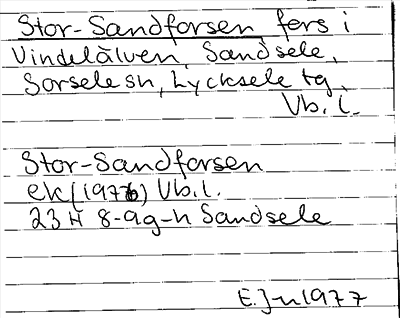 Stor-Sandforsen fors i
Vindelälven, Sandsele,
Sorsele sn, Lycksele tg,
Vb.l.
Stor-Sandforsen
ek (1976) Vb.l.
23H 8-9g-h Sandsele
E.Jn 1977